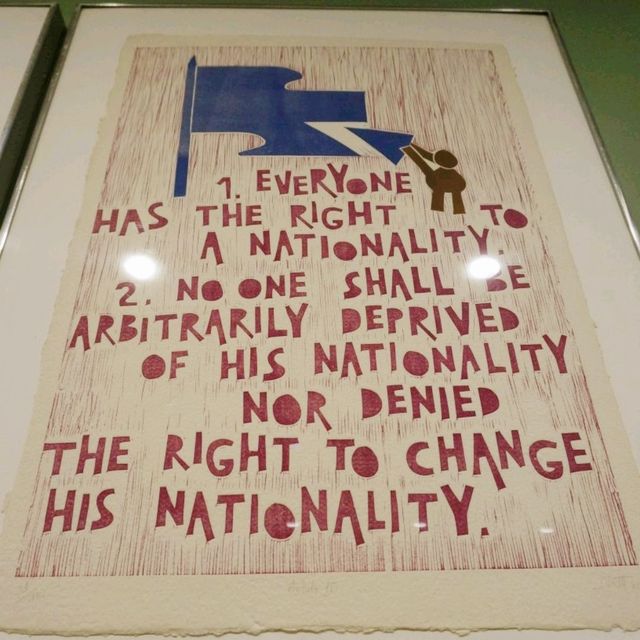 1. EVERYONE
HAS THE RIGHT TO
A NATIONALITY.
2. NO ONE SHALL BE
ARBITRARILY DEPRIVED
OF HIS NATIONALITY
NOR DENIED
THE RIGHT TO CHANGE
HIS NATIONALITY.